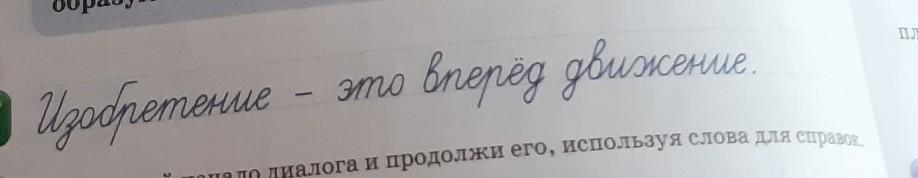 Изобретение – это вперёд движение.
диалога и продолжи его, используя слова для справок.